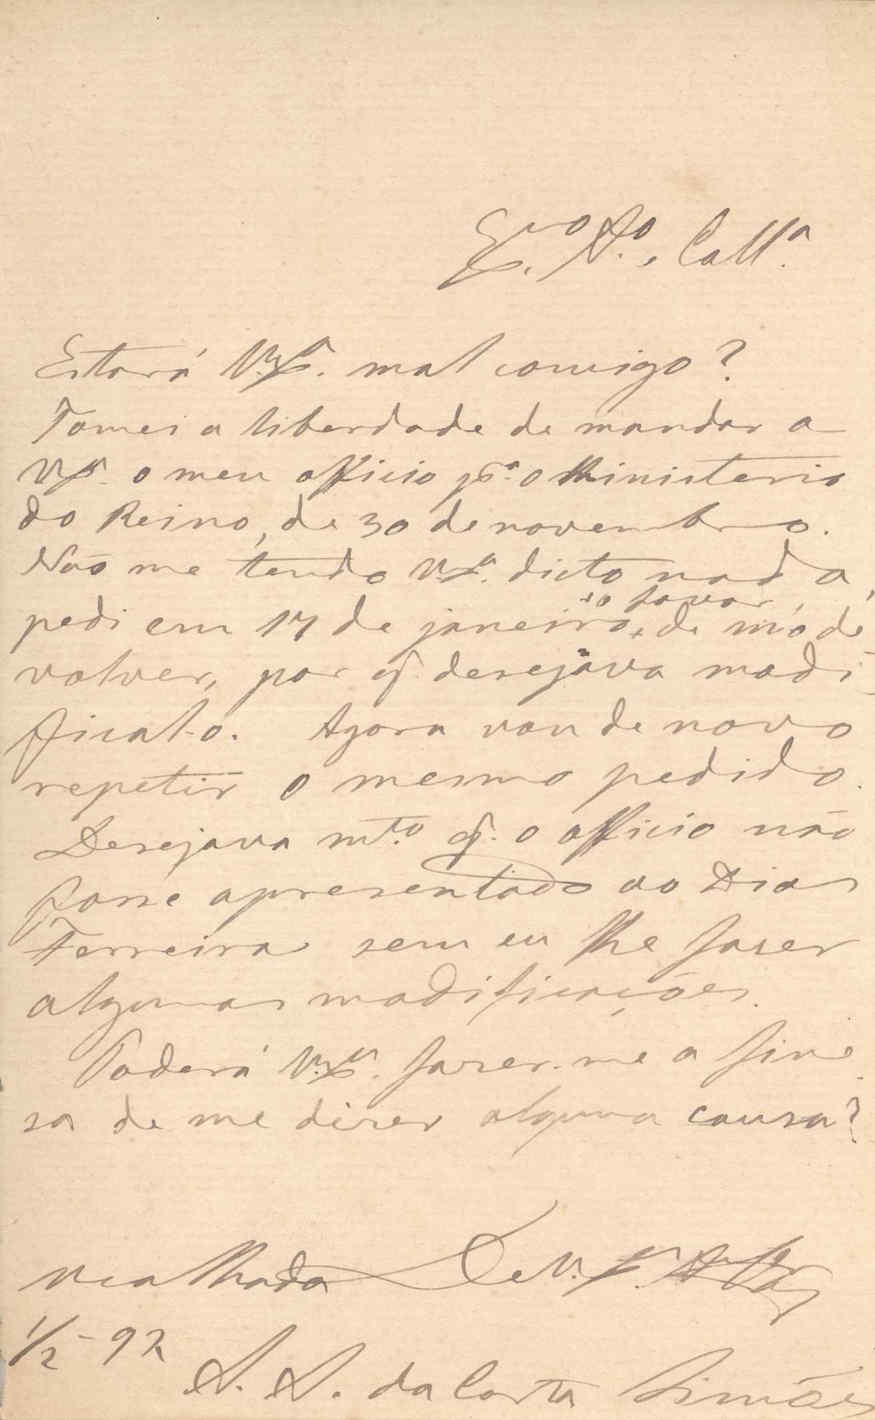 Ex.mo Am.o e Coll.a
Estará V. Ex.a mal comigo?
Tomei a liberdade de mandar a
V. Ex.a o meu officio p.a o Ministerio
do Reino, de 30 de novembro.
Não me tendo V. Ex.a dicto nada,
pedi em 17 de janeiro, o favor, de m'o de
volver, por q. desejava modi-
fical-o. Agora vou de novo
repetir o mesmo pedido.
Desejava m.to q. o officio não
fosse apresentado ao Dias
Ferreira sem eu lhe fazer
algumas modificações.
Poderá V. Ex.a fazer-me a fine
sa de me dizer alguma cousa?
Mealhada De V. Ex.a
1/2-92
A. A. da Costa Simões